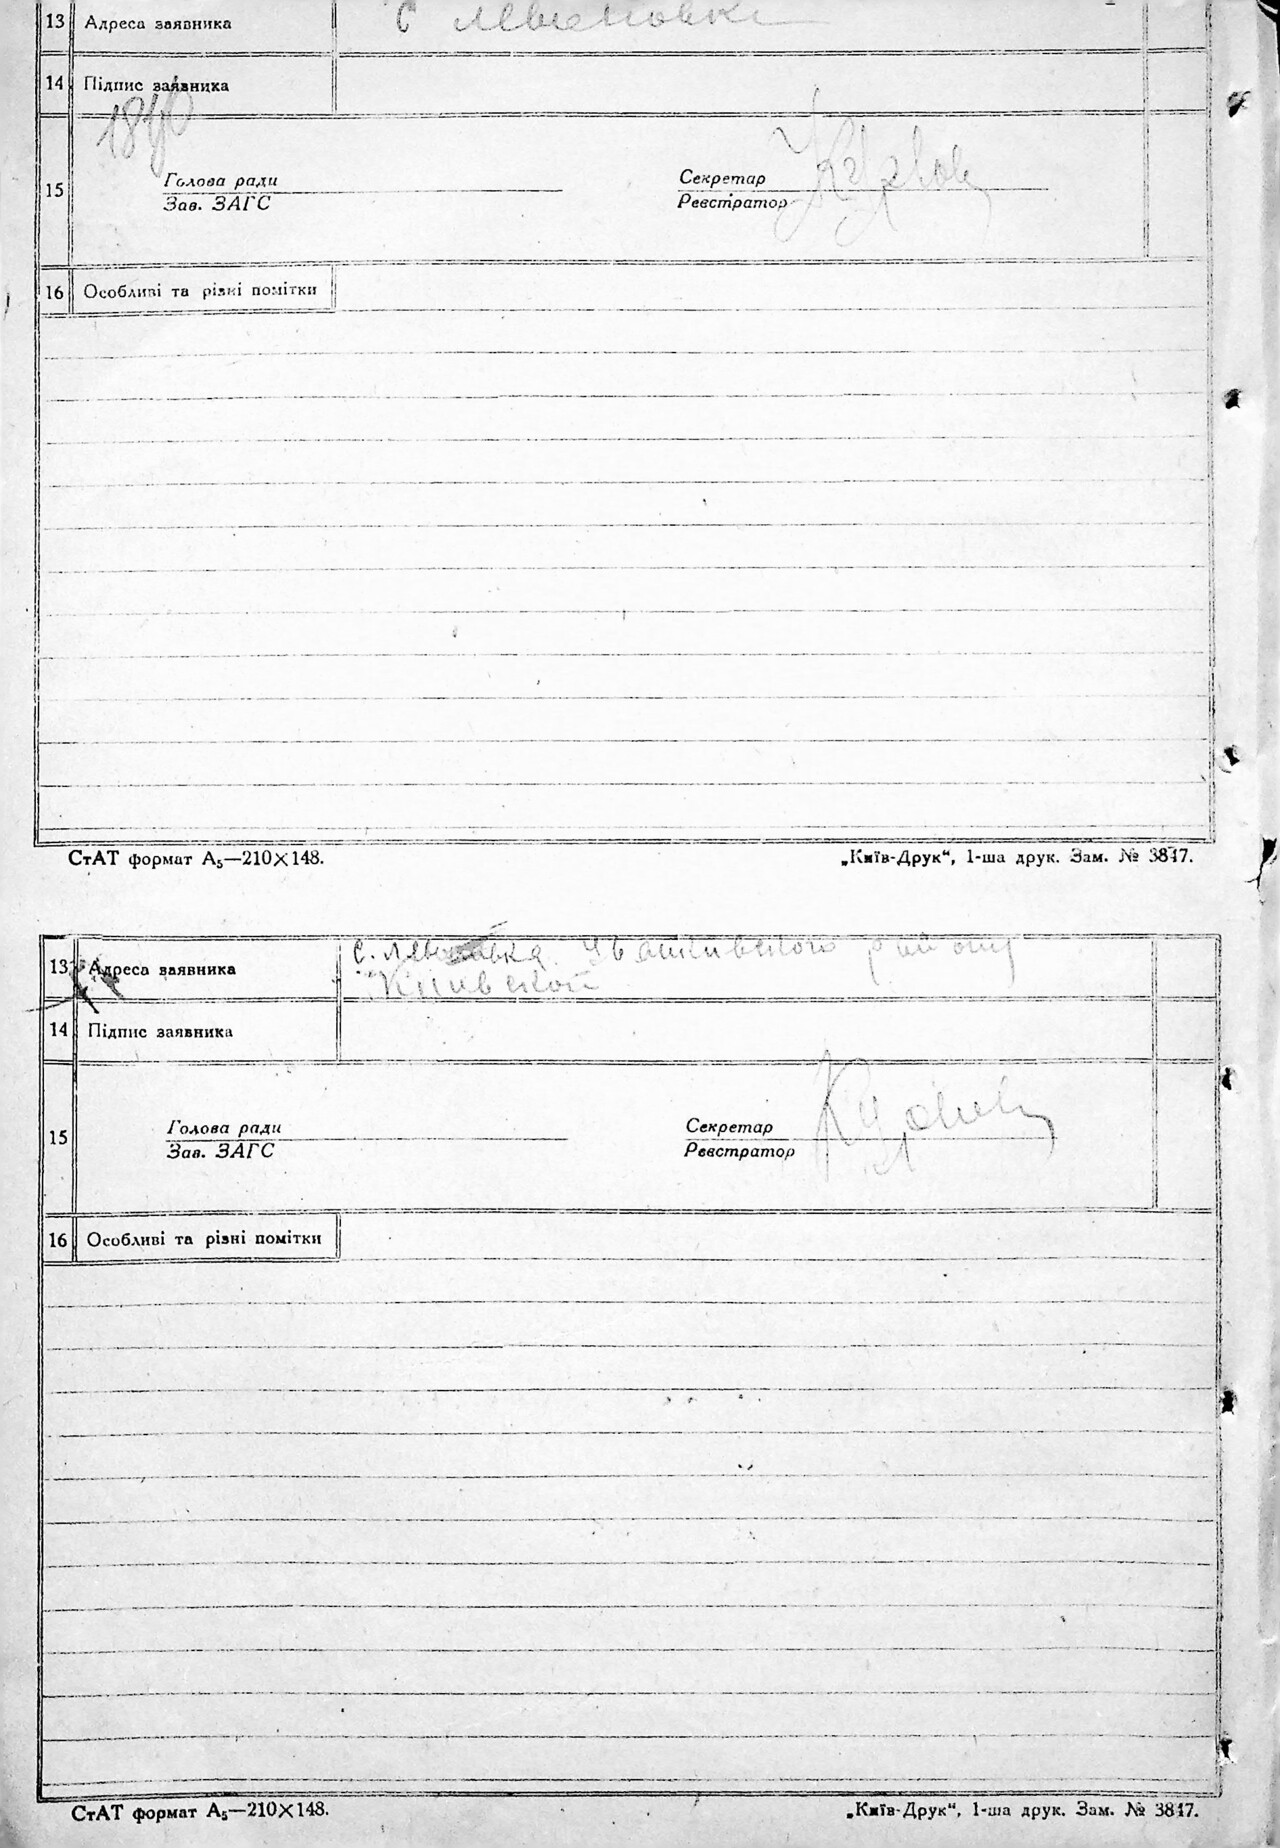 13 Адреса заявника С
14 Підпис заявника
15 Голова ради Секретар
Зав. ЗАГС Реєстратор
16 Особливі та різні помітки
СтАТ формат А₅—210×148. „Київ-Друк“, 1-ша друк. Зам. № 3847.
13 Адреса заявника с. району
Київской
14 Підпис заявника
15 Голова ради Секретар
Зав. ЗАГС Реєстратор
16 Особливі та різні помітки
СтАТ формат А₅—210×148. „Київ-Друк“, 1-ша друк. Зам. № 3847.